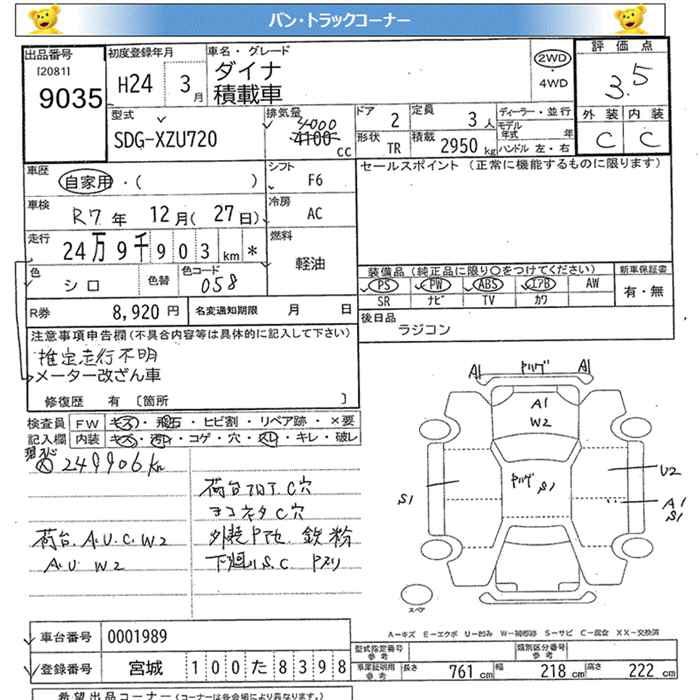 バン・トラックコーナー
出品番号
[2081]
9035
初度登録年月
H24 3月
車名・グレード
ダイナ
積載車
2WD
・
4WD
評価点
3.5
外装 内装
C C
型式
SDG-XZU720
排気量
4000
4100 cc
ドア 2
定員 3人
ディーラー・並行
モデル年式 年
ハンドル 左・右
形状 TR
積載 2950 kg
車歴
自家用・( )
シフト
F6
セールスポイント (正常に機能するものに限ります)
車検
R7年 12月(27日)
冷房
AC
走行
24万9千903km *
燃料
軽油
色
シロ
色替
色コード
058
装備品 (純正品に限り○をつけてください)
PS PW ABS エアB AW
SR ナビ TV カワ
新車保証書
有・無
R券 8,920円
名変通知期限 月 日
後日品
ラジコン
注意事項申告欄(不具合内容等は具体的に記入して下さい)
推定走行不明
メーター改ざん車
修復歴 有 〔箇所 〕
検査員
記入欄
FW キズ・飛石・ヒビ割・リペア跡・×要
内装 キズ・汚れ・コゲ・穴・スレ・キレ・破レ
249906km
荷台フロアC穴
ヨコネタC穴
荷台A.U.C.W2
外装P他 鉄粉
A.U W2
下廻りS.C
A1 ヤハゲ A1
A1
W2
ヤハゲ S1
S1
U2
A1
S1
スペア
A-キズ E-エクボ U-凹み W-補修跡 S-サビ C-腐食 XX-交換済
車台番号 0001989
型式指定番号
参考
類別区分番号
参考
登録番号 宮城 100た8398
車庫証明用
参考
長さ 761cm 幅 218cm 高さ 222cm
希望出品コーナー (コーナーは各会場により異なります。)